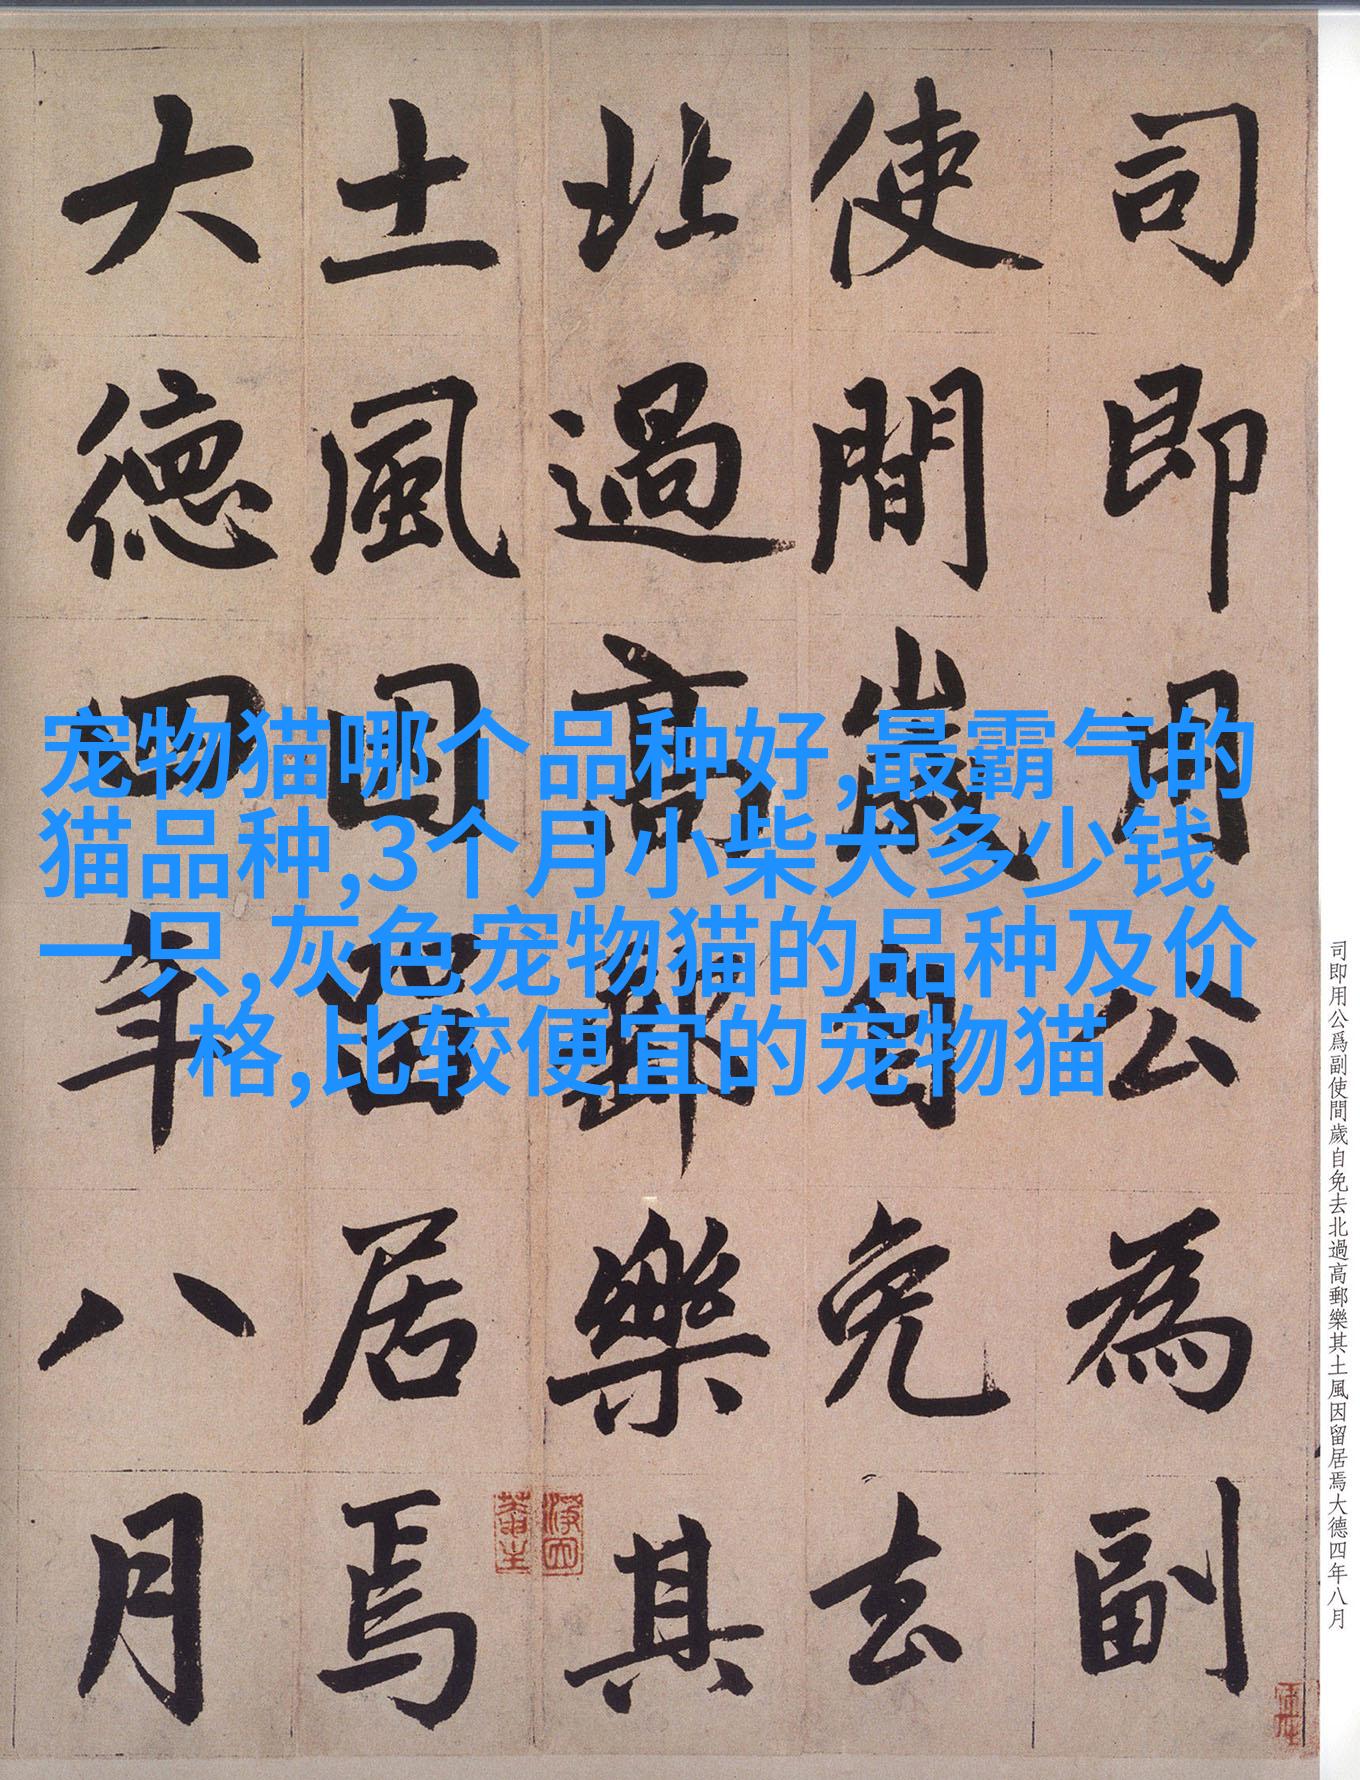 司即用公為副
使間歲自免去
北過高郵樂其
土風因留居焉
大德四年八月
宠物猫哪个品种好,最霸气的
猫品种,3个月小柴犬多少钱
一只,灰色宠物猫的品种及价
格,比较便宜的宠物猫
司即用公爲副使間歲自免去北過高郵樂其土風因留居焉大德四年八月